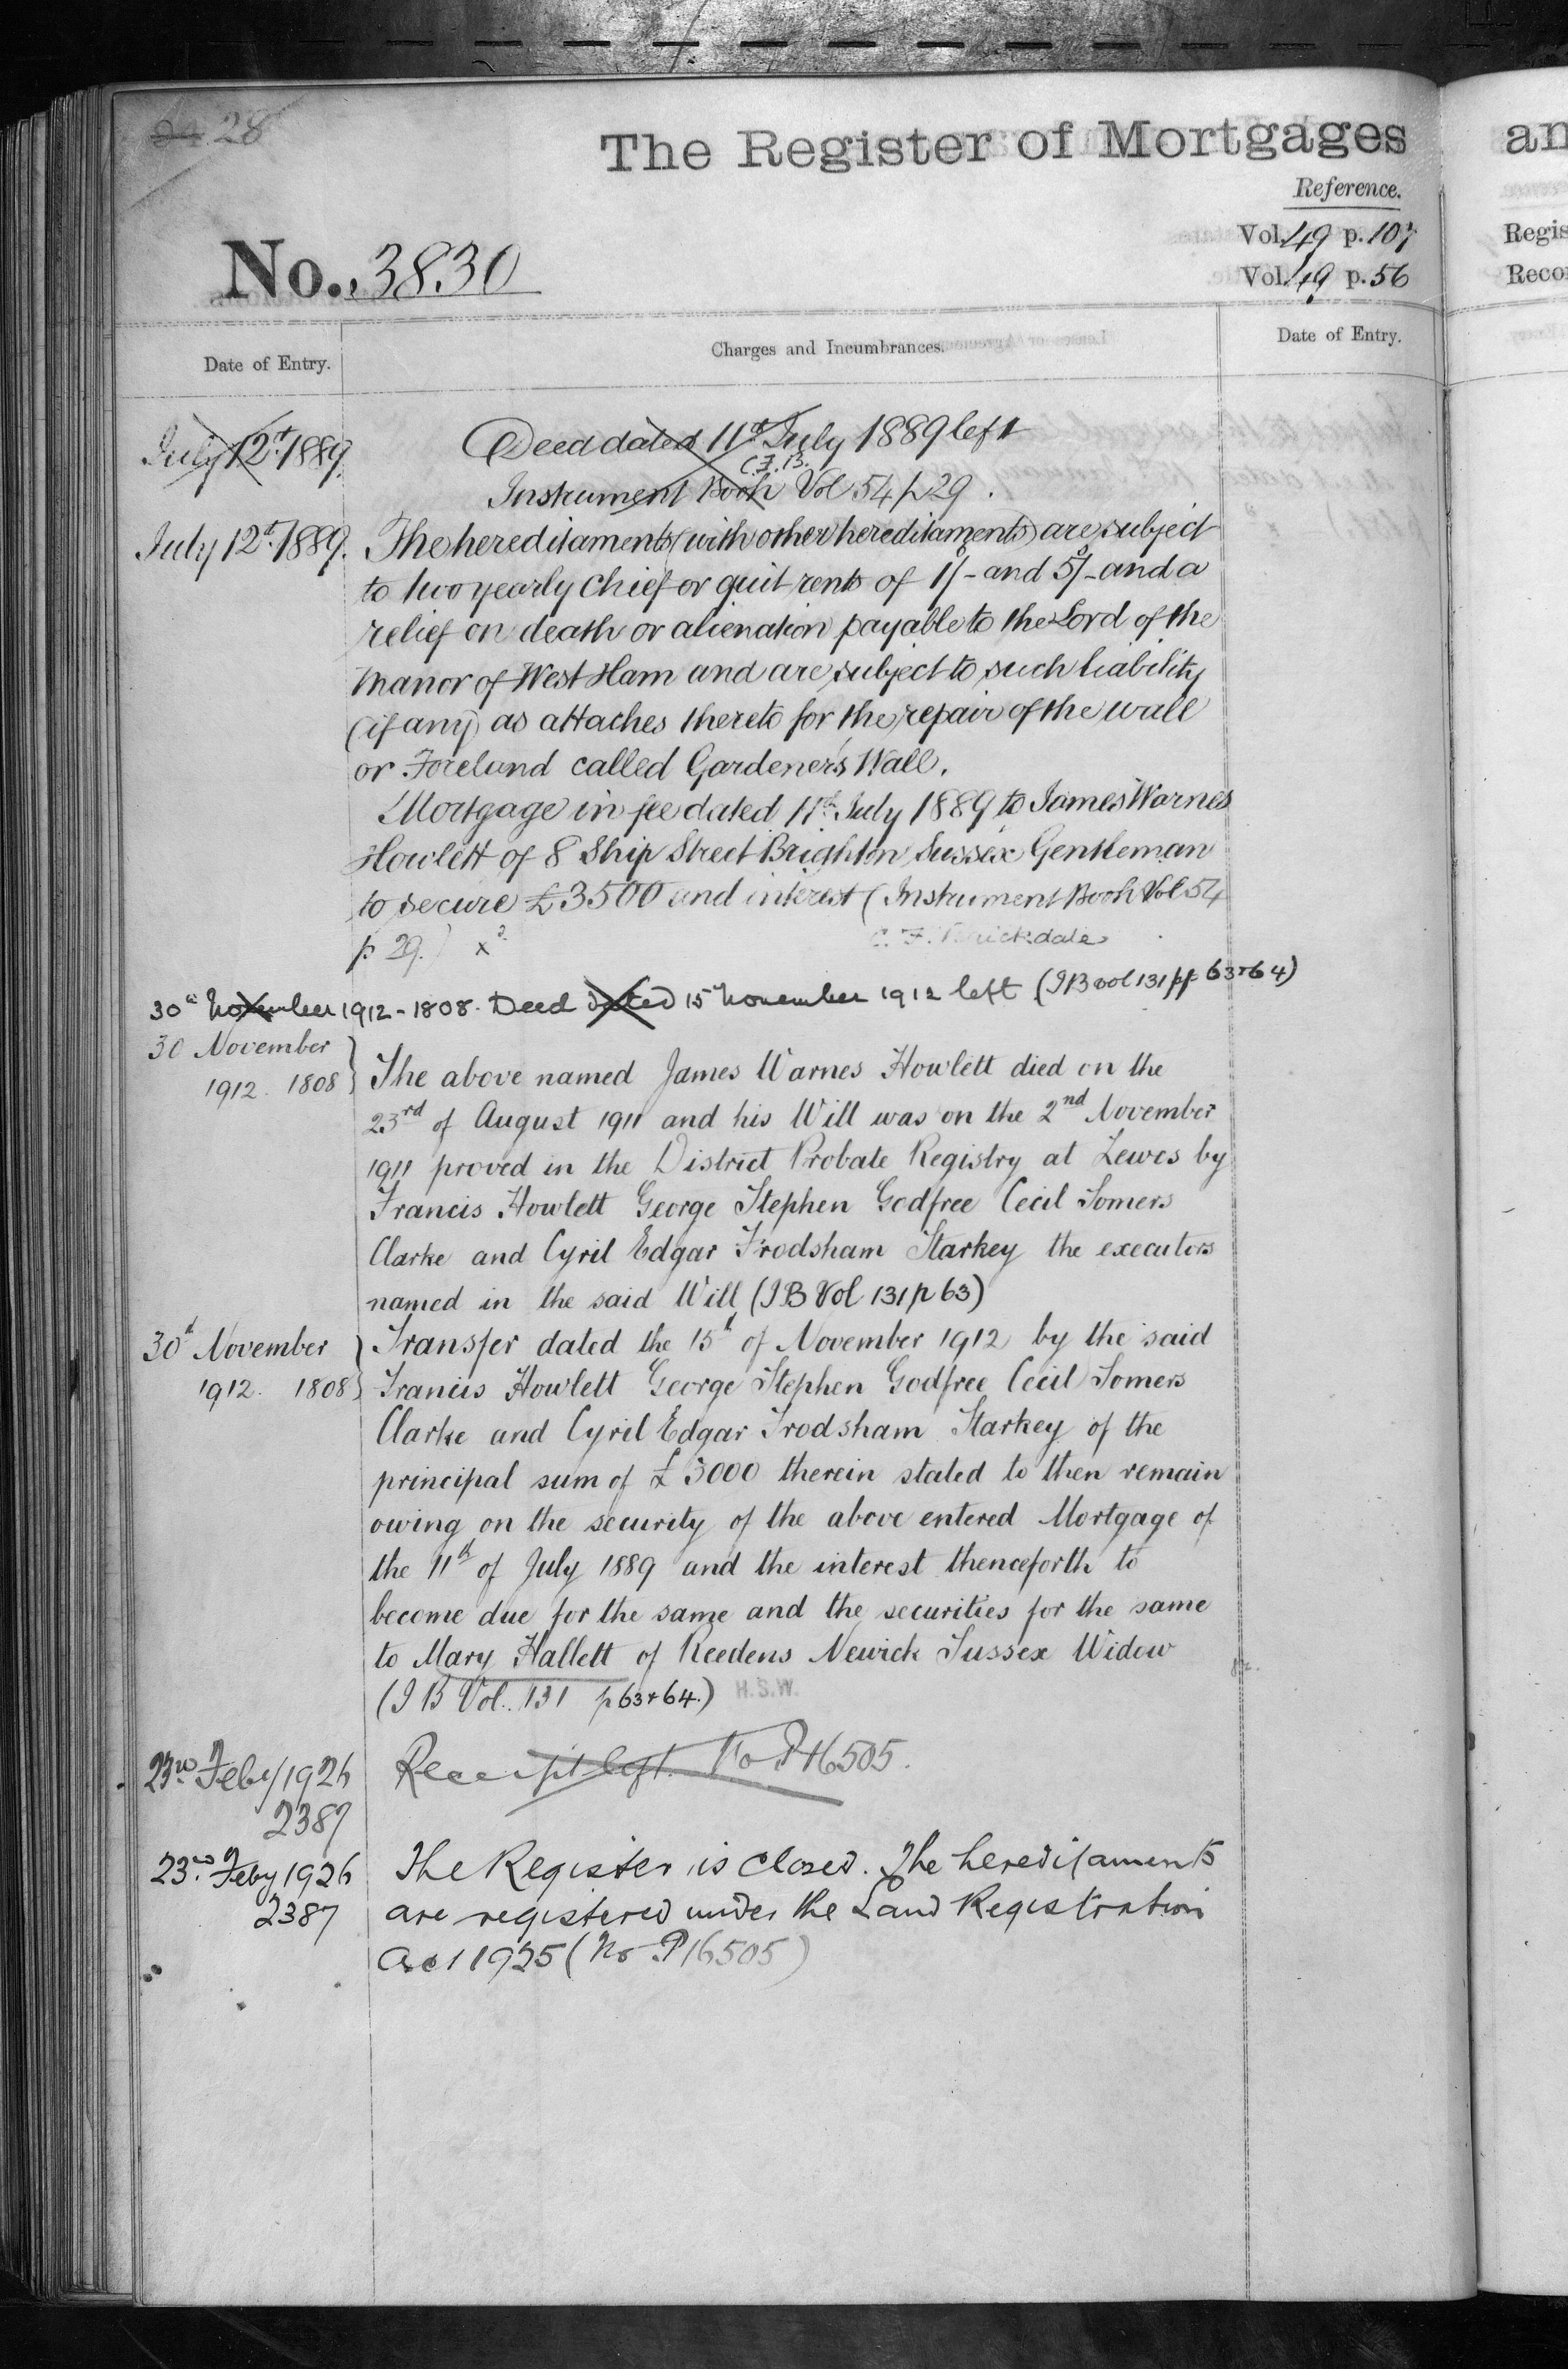 28
The Register of Mortgages
Reference.
No. 3830
Vol. 49 p. 107
Vol. 49 p. 56
Date of Entry.
Charges and Incumbrances.
Date of Entry.
July 12th 1889. Deed dated 11th July 1889 left
C.F.B.
Instrument Book Vol 54 p 29.
July 12th 1889. The hereditaments (with other hereditaments) are subject
to two yearly chief or quit rents of 1/- and 5/- and a
relief on death or alienation payable to the Lord of the
Manor of West Ham and are subject to such liability
(if any) as attaches thereto for the repair of the wall
or Foreland called Gardener's Wall.
Mortgage in fee dated 11th July 1889 to James Warnes
Howlett of 8 Ship Street Brighton Sussex Gentleman
to secure £3500 and interest (Instrument Book Vol 54
p 29.)
C. F. Brickdale
30th November 1912 - 1808. Deed dated 15 November 1912 left (IB vol 131 pp 63 + 64)
30 November
1912. 1808 } The above named James Warnes Howlett died on the
23rd of August 1911 and his Will was on the 2nd November
1911 proved in the District Probate Registry at Lewes by
Francis Howlett George Stephen Godfree Cecil Somers
Clarke and Cyril Edgar Frodsham Starkey the executors
named in the said Will (IB Vol 131 p 63)
30th November } Transfer dated the 15th of November 1912 by the said
1912. 1808 } Francis Howlett George Stephen Godfree Cecil Somers
Clarke and Cyril Edgar Frodsham Starkey of the
principal sum of £3000 therein stated to then remain
owing on the security of the above entered Mortgage of
the 11th of July 1889 and the interest thenceforth to
become due for the same and the securities for the same
to Mary Hallett of Reedens Newick Sussex Widow
(I B Vol. 131 p 63 + 64.) H.S.W.
23rd Feby 1926 Receipt left. No P16505.
2387
23rd Feby 1926 The Register is closed. The hereditaments
2387 are registered under the Land Registration
Act 1925 (No P16505)
an
Regis
Reco